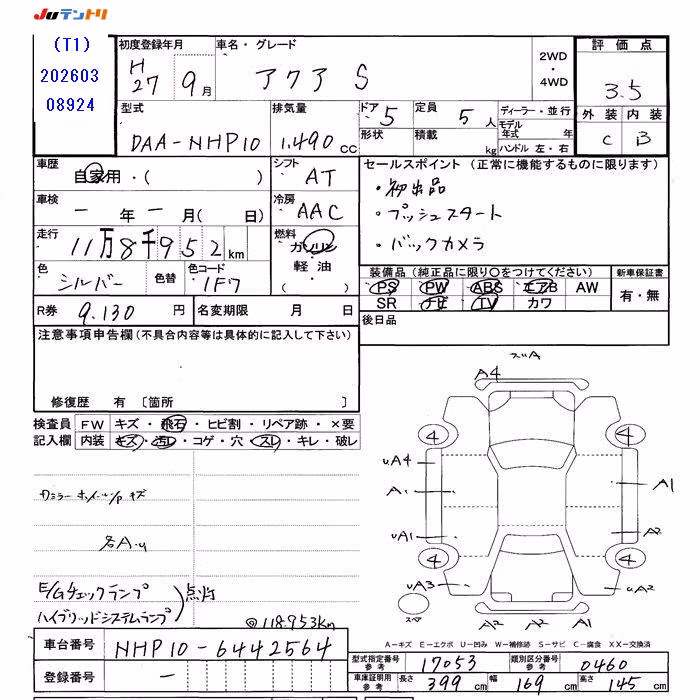 Juテントリ
(T1)
202603
08924
初度登録年月 H27 9月
車名・グレード アクア S
2WD・4WD
評価点 3.5
外装 内装
C B
型式 DAA-NHP10
排気量 1.490cc
ドア 5
形状
定員 5人
積載 kg
ディーラー・並行
モデル年式 年
ハンドル 左・右
車歴 自家用・( )
シフト AT
車検 ー年ー月( 日)
冷房 AAC
走行 11万8千952km
燃料 ガソリン・軽油・( )
色 シルバー 色替
色コード 1F7
R券 9.130円
名変期限 月 日
セールスポイント(正常に機能するものに限ります)
・初出品
・プッシュスタート
・バックカメラ
装備品(純正品に限り○をつけてください)
PS PW ABS エアB AW
SR ナビ TV カワ
新車保証書
有・無
後日品
注意事項申告欄(不具合内容等は具体的に記入して下さい)
修復歴 有 〔箇所 〕
検査員 FW キズ・飛石・ヒビ割・リペア跡・×要
記入欄 内装 キズ・汚レ・コゲ・穴・スレ・キレ・破レ
各A・u
E/Gチェックランプ
ハイブリッドシステムランプ
点灯
@118.953km
A4
4 4
uA4
A1 A1
uA1 A2
4 4
uA3 uA2
スペア
A2 A2 A1
A-キズ E-エクボ U-凹み W-補修跡 S-サビ C-腐食 XX-交換済
車台番号 NHP10-6442564
登録番号 ー
型式指定番号 参考 17053
類別区分番号 参考 0460
車庫証明用 参考 長さ 399cm 幅 169cm 高さ 145cm